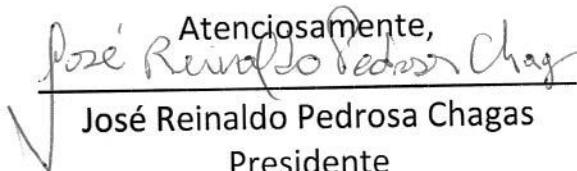 Atenciosamente,
José Reinaldo Pedrosa Chag
José Reinaldo Pedrosa Chagas
Presidente